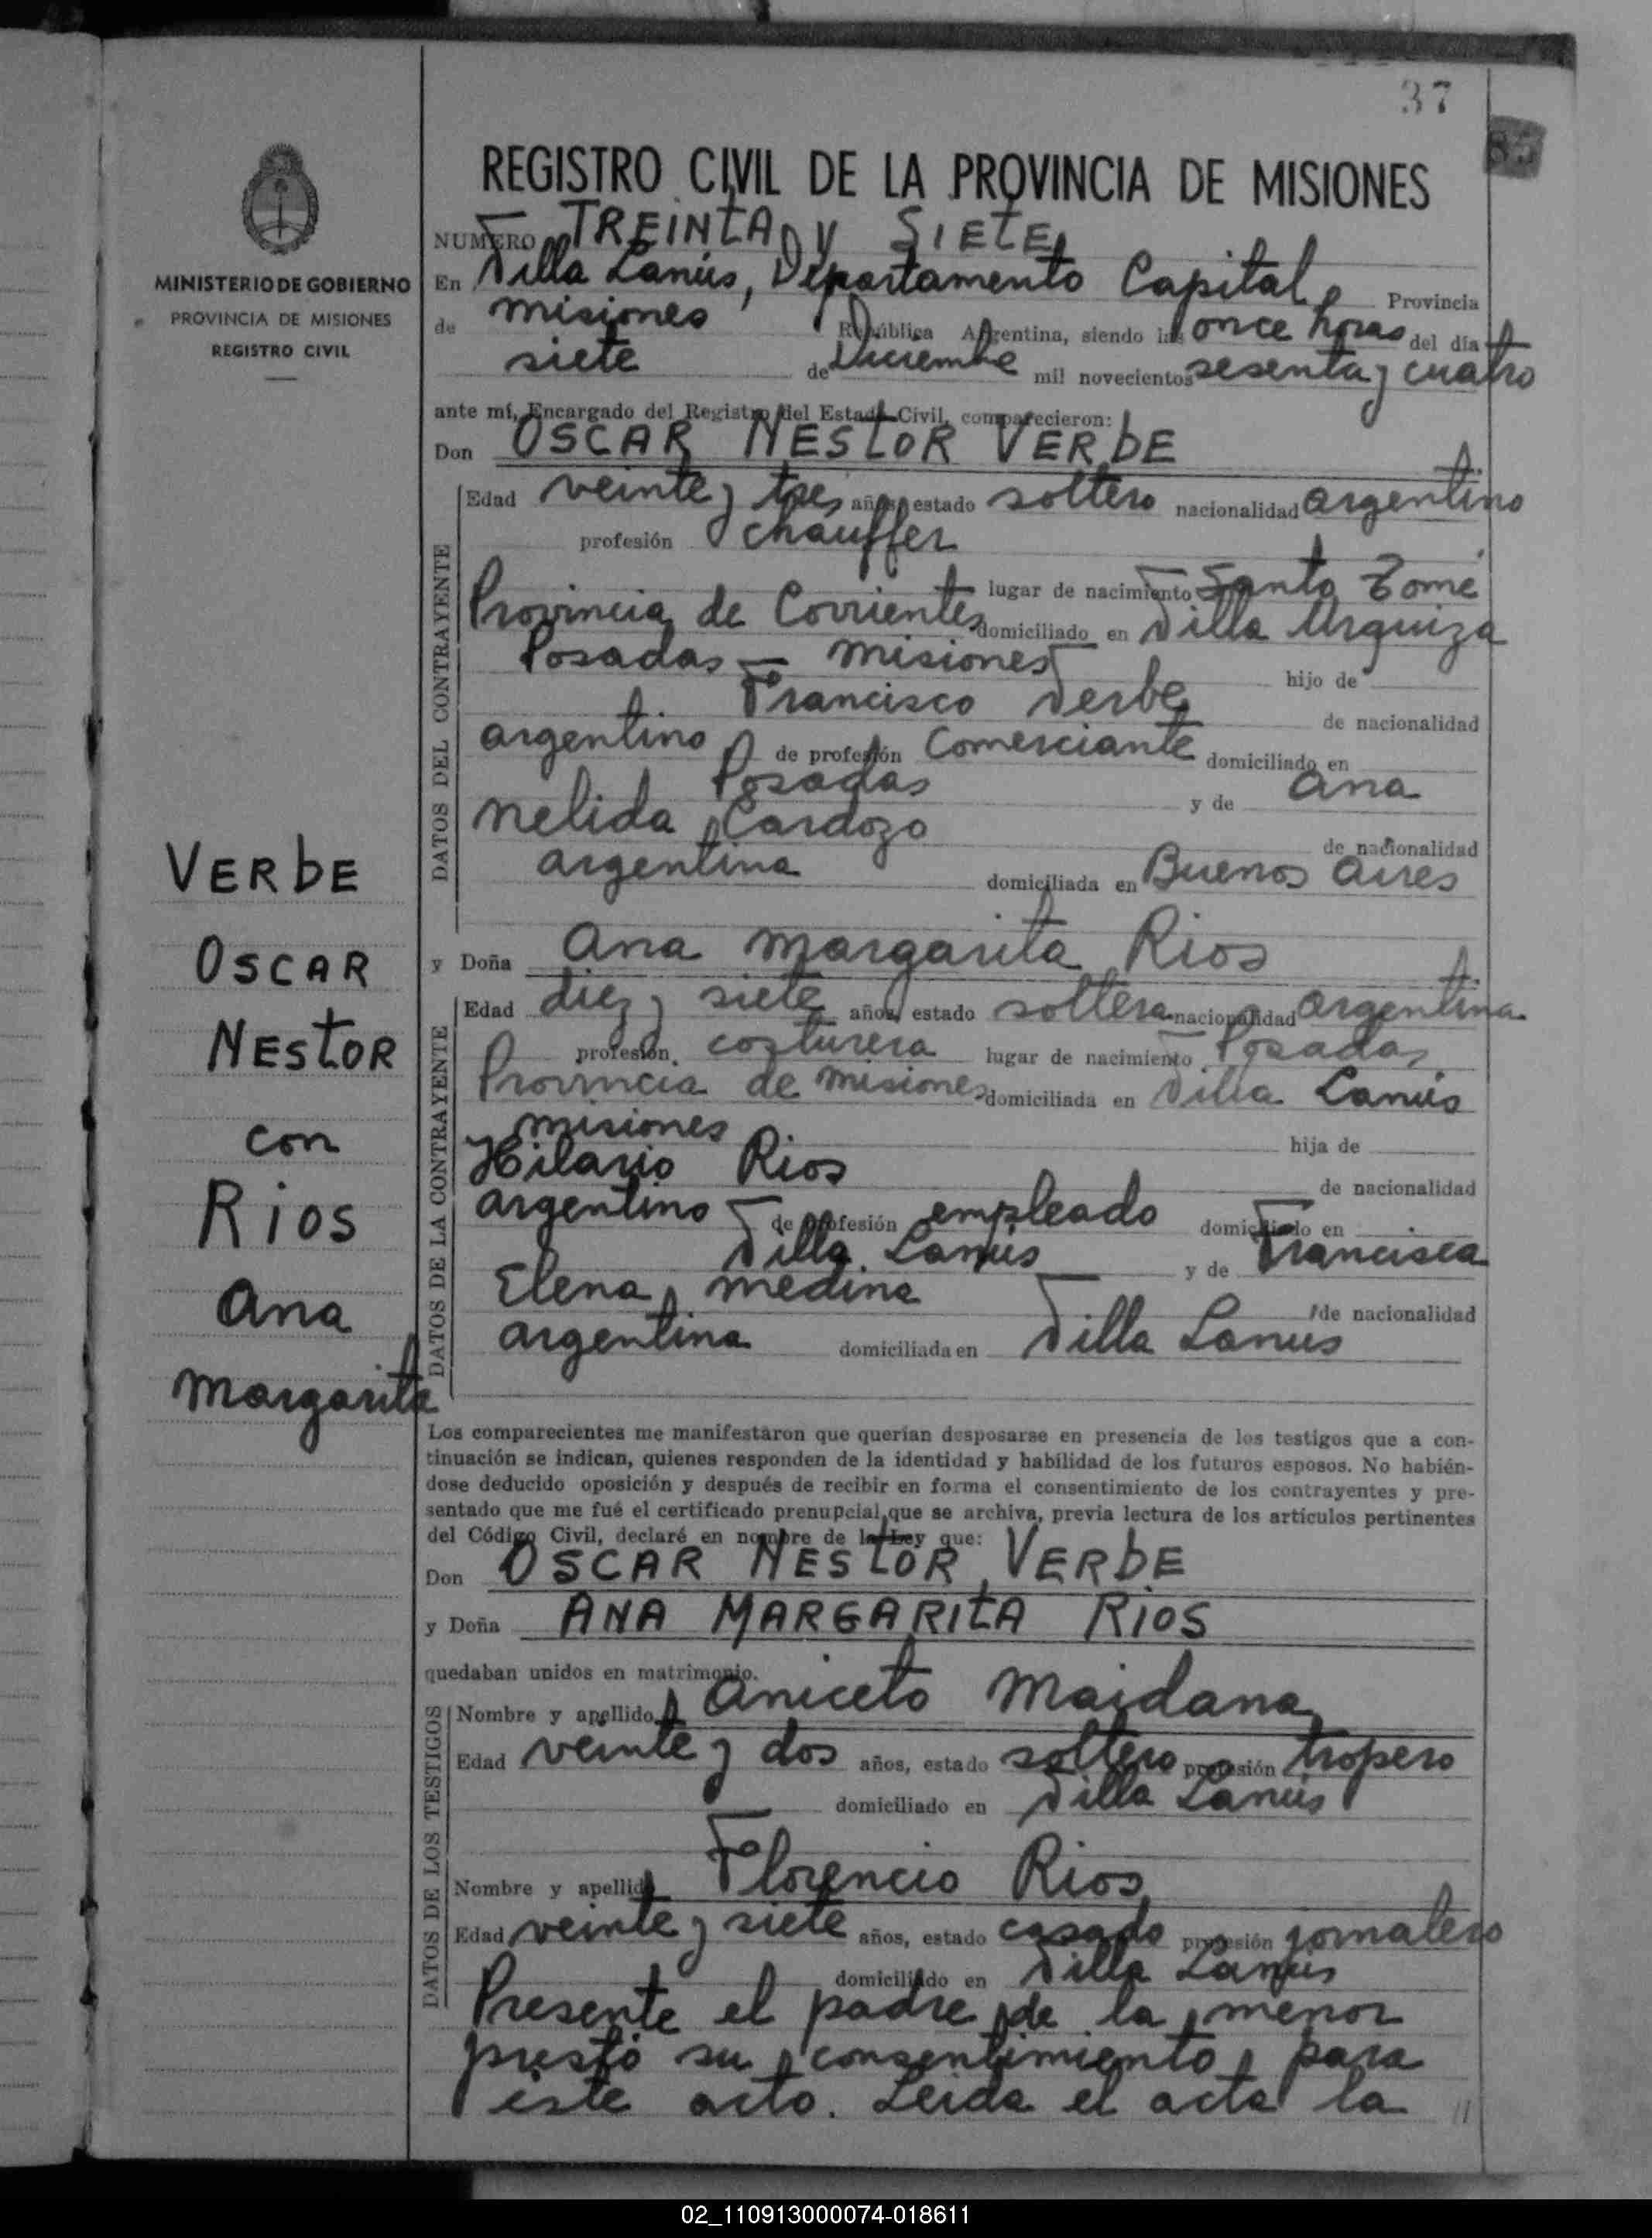 37
85
REGISTRO CIVIL DE LA PROVINCIA DE MISIONES
MINISTERIO DE GOBIERNO
PROVINCIA DE MISIONES
REGISTRO CIVIL
NUMERO TREINTA Y SIETE
En Villa Lanús, Departamento Capital Provincia
de Misiones República Argentina, siendo las once horas del día
siete de Diciembre mil novecientos sesenta y cuatro
ante mí, Encargado del Registro del Estado Civil, comparecieron:
Don OSCAR NESTOR VERDE
DATOS DEL CONTRAYENTE
Edad veinte y tres años, estado soltero nacionalidad argentino
profesión chauffer
lugar de nacimiento Santo Tomé
Provincia de Corrientes domiciliado en Villa Urquiza
Posadas - Misiones hijo de
Francisco Verde de nacionalidad
argentino de profesión Comerciante domiciliado en
Posadas y de Ana
Nelida Cardozo de nacionalidad
argentina domiciliada en Buenos Aires
y Doña Ana Margarita Rios
DATOS DE LA CONTRAYENTE
Edad diez y siete años, estado soltera nacionalidad Argentina
profesión costurera lugar de nacimiento Posadas,
Provincia de Misiones domiciliada en Villa Lanús
Misiones hija de
Hilario Rios de nacionalidad
argentino de profesión empleado domiciliado en
Villa Lanús y de Francisca
Elena Medina de nacionalidad
argentina domiciliada en Villa Lanus
VERDE
OSCAR
NESTOR
con
Rios
Ana
Margarita
Los comparecientes me manifestaron que querían desposarse en presencia de los testigos que a con-
tinuación se indican, quienes responden de la identidad y habilidad de los futuros esposos. No habién-
dose deducido oposición y después de recibir en forma el consentimiento de los contrayentes y pre-
sentado que me fué el certificado prenupcial que se archiva, previa lectura de los artículos pertinentes
del Código Civil, declaré en nombre de la Ley que:
Don OSCAR NESTOR VERDE
y Doña ANA MARGARITA RIOS
quedaban unidos en matrimonio.
DATOS DE LOS TESTIGOS
Nombre y apellido Aniceto Maidana
Edad veinte y dos años, estado soltero profesión tropero
domiciliado en Villa Lanús
Nombre y apellido Florencio Rios
Edad veinte y siete años, estado casado profesión jornalero
domiciliado en Villa Lanús
Presente el padre de la menor
prestó su consentimiento para
éste acto. Leida el acta la //
02_110913000074-018611